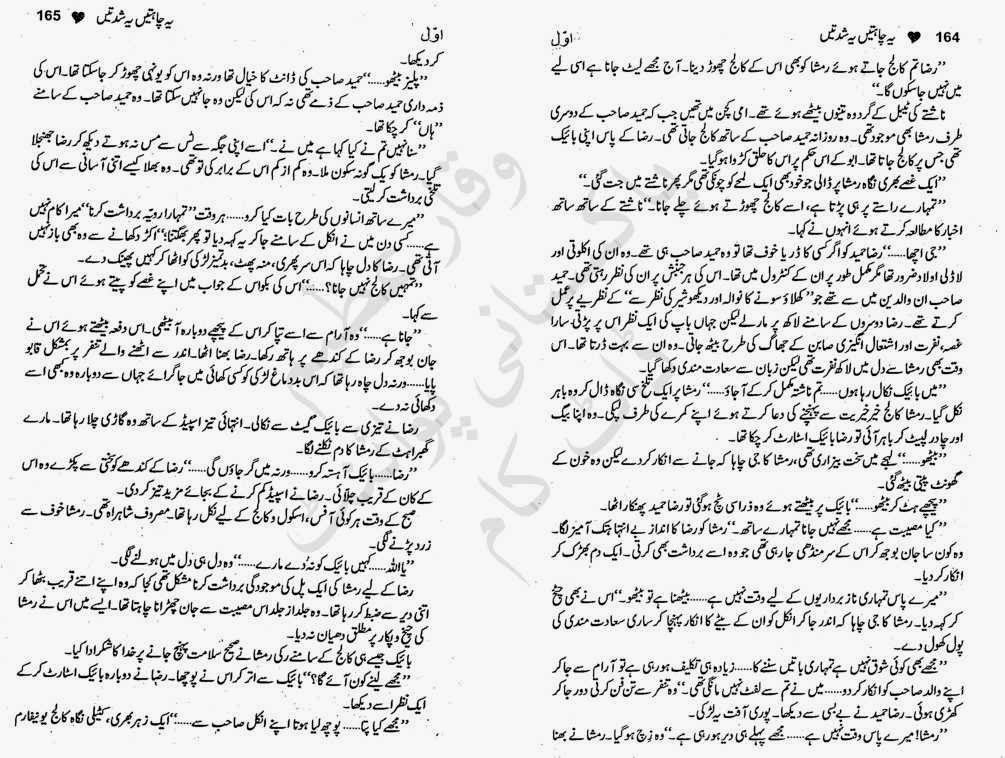 164 یہ چاہتیں یہ شدتیں
اوّل
”رضا تم کالج جاتے ہوئے رمشا کو بھی اس کے کالج چھوڑ دینا۔ آج مجھے لیٹ جانا ہے اسی لیے
میں نہیں جا سکوں گا۔“
ناشتے کی ٹیبل کے گرد وہ تینوں بیٹھے ہوئے تھے۔ امی کچن میں تھیں جب کہ حمید صاحب کے دوسری
طرف رمشا بھی موجود تھی۔ وہ روزانہ حمید صاحب کے ساتھ کالج جاتی تھی۔ رضا کے پاس اپنی بائیک
تھی جس پر کالج جاتا تھا۔ ابو کے اس حکم پر اس کا حلق کڑوا ہو گیا۔
”ایک غصے بھری نگاہ رمشا پر ڈالی جو خود بھی ایک لمحے کو چونکی تھی مگر پھر ناشتے میں جت گئی۔“
”تمہارے راستے پر ہی پڑتا ہے، اسے کالج چھوڑتے ہوئے چلے جانا۔“ ناشتے کے ساتھ ساتھ
اخبار کا مطالعہ کرتے ہوئے انہوں نے کہا۔
”جی اچھا......“ رضا حمید کو اگر کسی کا ڈر یا خوف تھا تو وہ حمید صاحب ہی تھے۔ وہ ان کی اکلوتی اور
لاڈلی اولاد ضرور تھا مگر مکمل طور پر ان کے کنٹرول میں تھا۔ اس کی ہر جنبش پر ان کی نظر رہتی تھی۔ حمید
صاحب ان والدین میں سے تھے جو ”کھلاؤ سونے کا نوالہ اور دیکھو شیر کی نظر سے“ کے نظریے پر عمل
کرتے تھے۔ رضا دوسروں کے سامنے لاکھ پر مارلے لیکن جہاں باپ کی ایک نظر اس پر پڑتی سارا
غصہ، نفرت اور اشتعال انگیزی صابن کے جھاگ کی طرح بیٹھ جاتی تھی۔ وہ ان سے بہت ڈرتا تھا۔ اس
وقت بھی رمشا سے دل میں لاکھ نفرت تھی لیکن زبان سے سعادت مندی دکھا گیا۔
”میں بائیک نکال رہا ہوں...... تم ناشتہ مکمل کر کے آ جاؤ......“ رمشا پر ایک تلخ سی نگاہ ڈال کر وہ باہر
نکل گیا۔ رمشا کالج خیر خیریت سے پہنچنے کی دعا کرتے ہوئے اپنے کمرے کی طرف لپکی۔ وہ اپنا بیگ
اور چادر لپیٹ کر باہر آئی تو رضا بائیک اسٹارٹ کر چکا تھا۔
”بیٹھو......“ لہجے میں سخت بیزاری تھی، رمشا کا جی چاہا کہ جانے سے انکار کر دے لیکن وہ خون کے
گھونٹ پیتی بیٹھ گئی۔
”پیچھے ہٹ کر بیٹھو......“ بائیک پر بیٹھتے ہوئے وہ ذرا سی ٹچ ہو گئی تو رضا حمید پھنکار اٹھا۔
”کیا مصیبت ہے...... مجھے نہیں جانا تمہارے ساتھ۔“ رمشا کو رضا کا انداز بے انتہا ہتک آمیز لگا۔
وہ کون سا جان بوجھ کر اس کے سر منڈھی جا رہی تھی جو وہ اسے برداشت بھی کرتی۔ ایک دم بھڑک کر
انکار کر دیا۔
”میرے پاس تمہاری ناز برداریوں کے لیے وقت نہیں ہے...... بیٹھنا ہے تو بیٹھو۔“ اس نے بھی چیخ
کر کہہ دیا۔ رمشا کا جی چاہا کہ اندر جا کر انکل کو ان کے بیٹے کا انکار پہنچا کر ساری سعادت مندی کی
پول کھول دے۔
”مجھے بھی کوئی شوق نہیں ہے تمہاری باتیں سننے کا...... زیادہ ہی تکلیف ہو رہی ہے تو آرام سے جا کر
اپنے والد صاحب کو انکار کر دو...... میں نے تم سے لفٹ نہیں مانگی تھی۔“ وہ تنفر سے تن فن کرتی دور جا کر
کھڑی ہوئی۔ رضا حمید نے بے بسی سے دیکھا۔ پوری آفت یہ لڑکی۔
”رمشا! میرے پاس وقت نہیں ہے...... مجھے پہلے ہی دیر ہو رہی ہے۔“ وہ زچ ہو گیا۔ رمشا نے بھنا
یہ چاہتیں یہ شدتیں 165
اوّل
کر دیکھا۔
”پلیز بیٹھو......“ حمید صاحب کی ڈانٹ کا خیال تھا ورنہ وہ اس کو یونہی چھوڑ کر جا سکتا تھا۔ اس کی
ذمہ داری حمید صاحب کے ذمے تھی نہ کہ اس کی لیکن وہ جا نہیں سکتا تھا۔ وہ حمید صاحب کے سامنے
”ہاں“ کر چکا تھا۔
”سنا نہیں تم نے کیا کہا ہے میں نے۔“ اسے اپنی جگہ سے ٹس سے مس نہ ہوتے دیکھ کر رضا جھنجلا
گیا۔ رمشا کو یک گونہ سکون ملا۔ وہ کم از کم اس کے برابر کی تو تھی۔ وہ بھلا کیسے اتنی آسانی سے اس کی
تلخی برداشت کر لیتی۔
”میرے ساتھ انسانوں کی طرح بات کیا کرو...... ہر وقت ”تمہارا رویہ برداشت کرنا“ میرا کام نہیں
ہے...... کسی دن میں نے انکل کے سامنے جا کر یہ کہہ دیا تو پھر بھگتنا؛“ اکڑ دکھانے سے وہ بھی باز نہیں
آتی تھی۔ رضا کا دل چاہا کہ اس سر پھری، منہ پھٹ، بدتمیز لڑکی کو اٹھا کر کہیں پھینک دے۔
”تمہیں کالج نہیں جانا؟......“ اس کی بکواس کے جواب میں اپنے غصے کو پیتے ہوئے اس نے تحمل
سے کہا۔
”جانا ہے......“ وہ آرام سے اسے تپا کر اس کے پیچھے دوبارہ آ بیٹھی۔ اس دفعہ بیٹھتے ہوئے اس نے
جان بوجھ کر رضا کے کندھے پر ہاتھ رکھا۔ رضا بھنا اٹھا۔ اندر سے اٹھنے والے تنفر پر بمشکل قابو
پایا...... ورنہ دل چاہ رہا تھا کہ اس بددماغ لڑکی کو کسی کھائی میں جا گرائے جہاں سے دوبارہ وہ بھی اسے
دکھائی نہ دے۔
رضا نے تیزی سے بائیک گیٹ سے نکالی۔ انتہائی تیز اسپیڈ کے ساتھ وہ گاڑی چلا رہا تھا۔ مارے
گھبراہٹ کے رمشا کا دم نکلنے لگا۔
”رضا...... بائیک آہستہ کرو...... ورنہ میں گر جاؤں گی......“ رضا کے کندھے کو سختی سے پکڑے وہ اس
کے کان کے قریب چلائی۔ رضا نے اسپیڈ کم کرنے کے بجائے مزید تیز کر دی۔
صبح کے وقت ہر کوئی آفس، اسکول و کالج کے لیے نکل رہا تھا۔ مصروف شاہراہ تھی۔ رمشا خوف سے
زرد پڑنے لگی۔
”یا اللہ...... کہیں بائیک کو نہ دے مارے......“ وہ دل ہی دل میں ہولنے لگی۔
رضا کے لیے رمشا کی ایک پل کی موجودگی برداشت کرنا مشکل تھی کجا کہ وہ اپنے اتنے قریب بٹھا کر
اتنی دیر سے ضبط کر رہا تھا۔ وہ جلد از جلد اس مصیبت سے جان چھڑانا چاہتا تھا۔ ایسے میں اس نے رمشا
کی چیخ و پکار پر مطلق دھیان نہ دیا۔
بائیک جیسے ہی کالج کے سامنے رکی رمشا نے صحیح سلامت پہنچ جانے پر خدا کا شکر ادا کیا۔
”مجھے لینے کون آئے گا؟“ بائیک سے اتر کر اس نے پوچھا۔ رضا نے دوبارہ بائیک اسٹارٹ کر کے
ایک نظر اسے دیکھا۔
”مجھے کیا پتا...... پوچھ لیا ہوتا اپنے انکل صاحب سے......“ ایک زہر بھری، کٹیلی نگاہ کالج یونیفارم